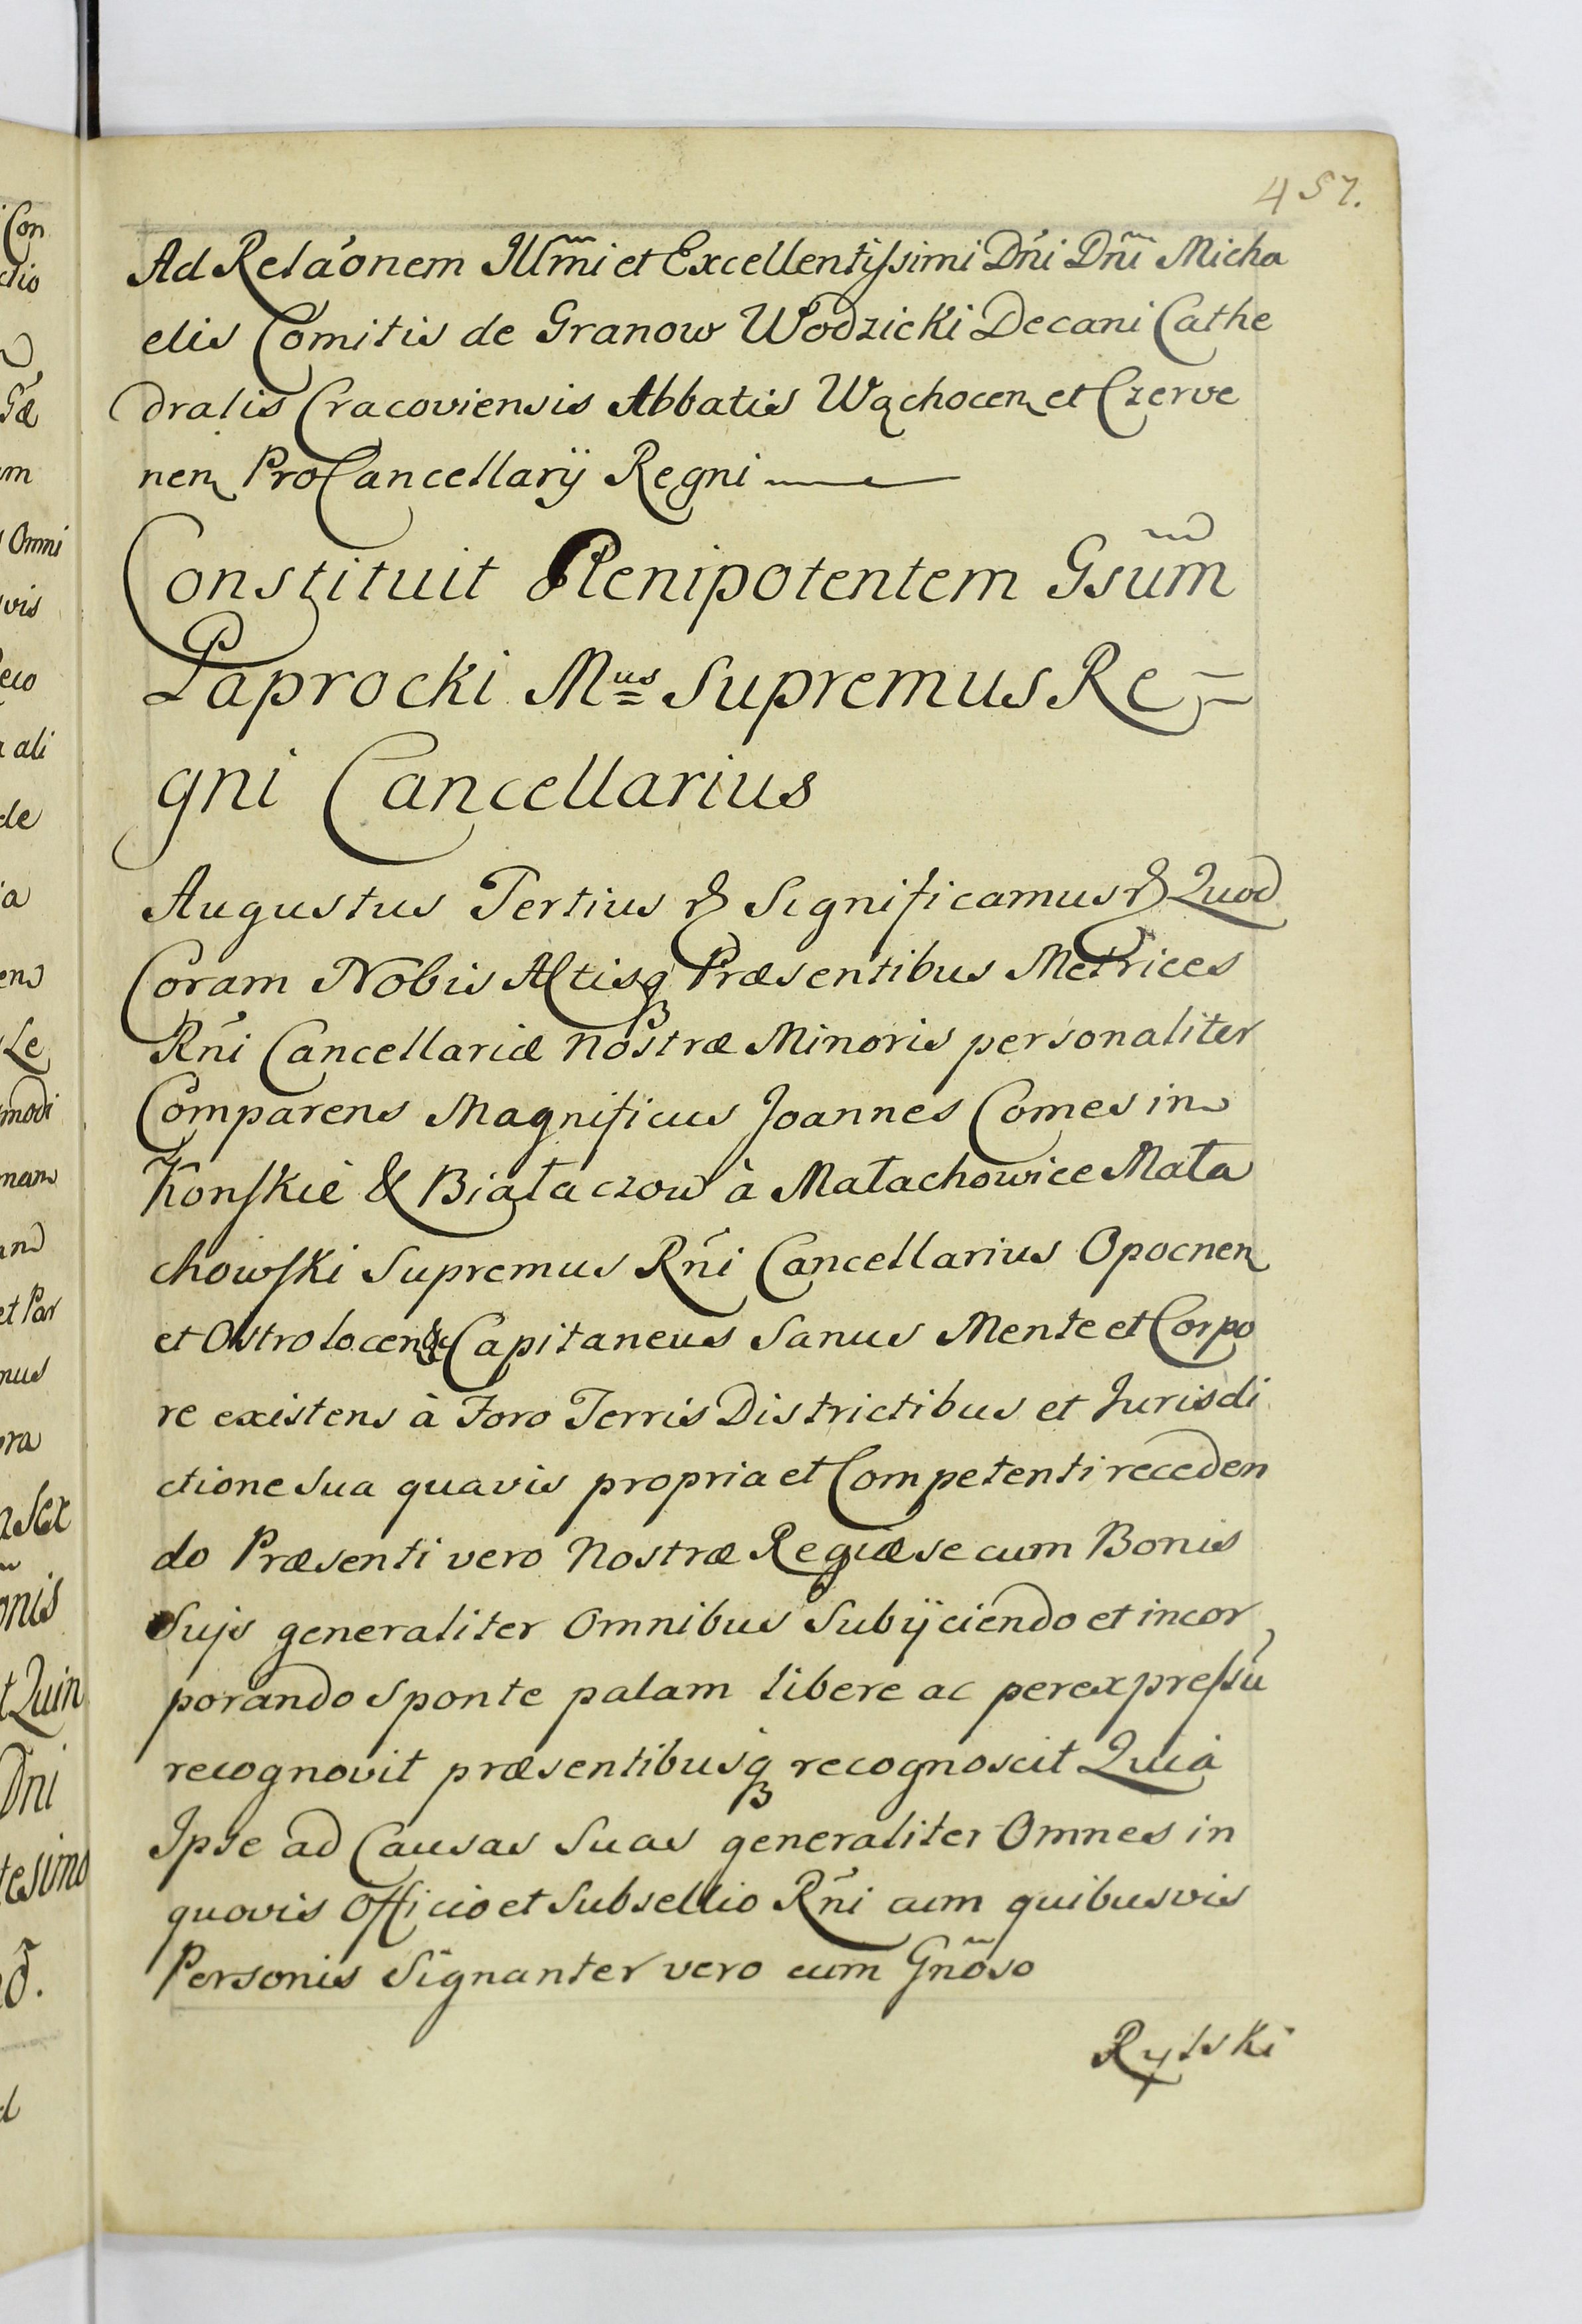 457.
Ad Relãonem Illm̃i et Excellentissimi Dñi Dñi Micha
elis Comitis de Granow Wodzicki Decani Cathe
dralis Cracoviensis Abbatis Wąchocen et Czerve
nen ProCancellarij Regni
Constituit Plenipotentem Gsũm
Paprocki Mus Supremus Re=
gni Cancellarius
Augustus Tertius & Significamus & Quod
Coram Nobis Actisq Præsentibus Metrices
Rñi Cancellariæ Nostræ Minoris personaliter
Comparens Magnificus Joannes Comes in
Konskie & Białaczow à Małachowice Mała
chowski Supremus Rñi Cancellarius Opocnen
et Ostrolocen & Capitaneus Sanus Mente et Corpo
re existens à Foro Terris Districtibus et Jurisdi
ctione sua quavis propria et Competenti receden
do Præsenti vero Nostræ Regiæ se cum Bonis
Sujs generaliter Omnibus Subijciendo et incor
porando sponte palam libere ac per expressũ
recognovit præsentibusq recognoscit Quia
Ipse ad Causas Suas generaliter Omnes in
quovis Officio et Subsellio Rñi cum quibusvis
Personis Signanter vero cum Gñoso
Rylski